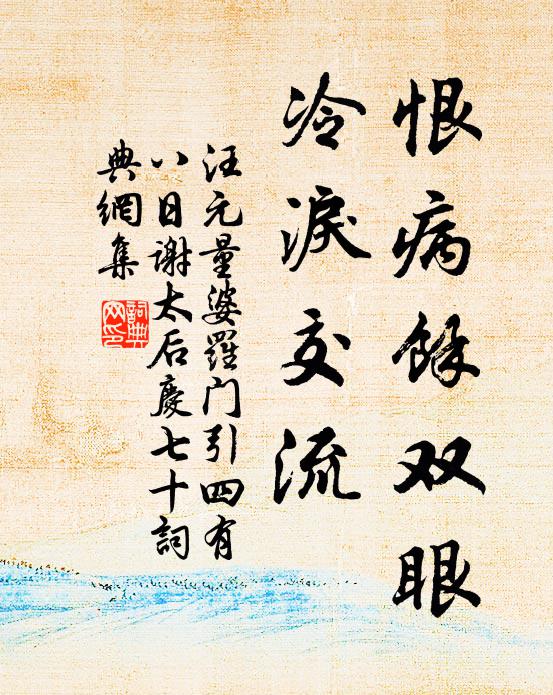 恨病餘双眼
冷淚交流
汪元量婆羅门引四有
八日谢太后慶七十詞
典網集
詞典
网印